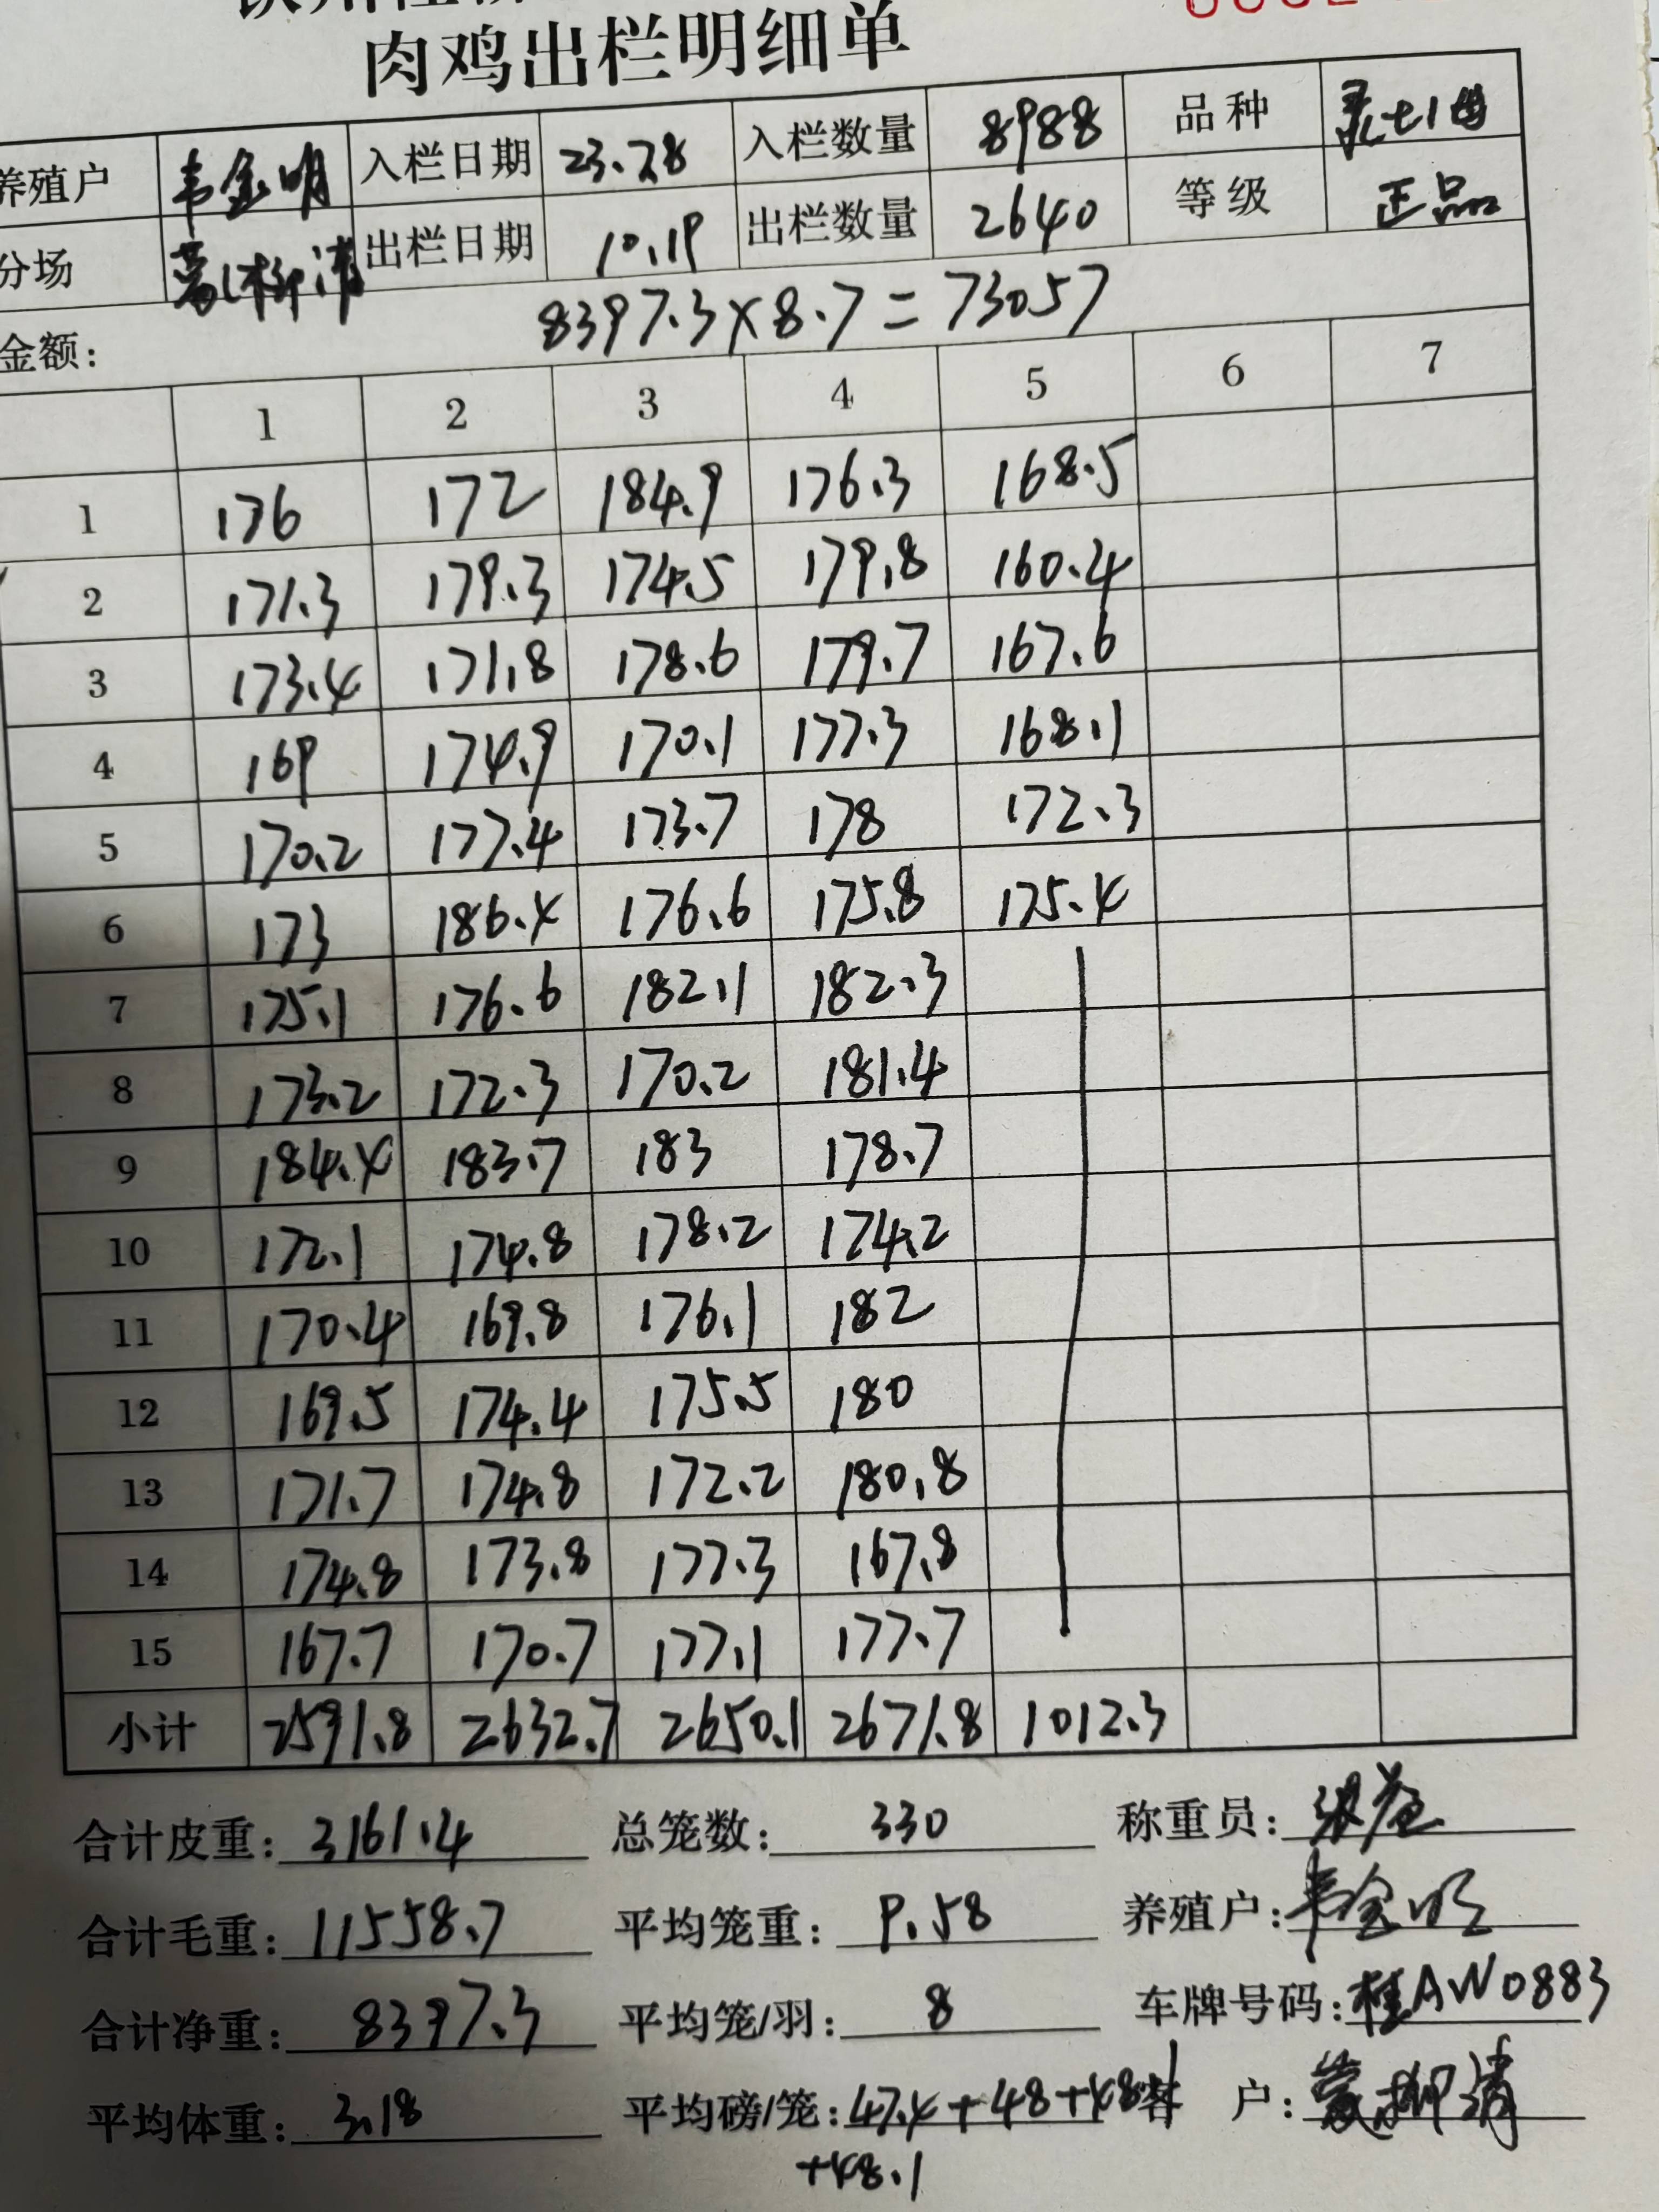 肉鸡出栏明细单
养殖户 韦金明 入栏日期 23.7.8 入栏数量 8988 品种
分场 蒙柳清 出栏日期 10.19 出栏数量 2640 等级 正品
金额: 8397.3×8.7=73057
1 2 3 4 5 6 7
1 176 172 184.9 176.3 168.5
2 171.3 179.3 174.5 179.8 160.4
3 173.4 171.8 178.6 179.7 167.6
4 169 174.9 170.1 177.3 168.1
5 170.2 177.4 173.7 178 172.3
6 173 186.4 176.6 175.8 175.4
7 175.1 176.6 182.1 182.3
8 173.2 172.3 170.2 181.4
9 184.4 183.7 183 178.7
10 172.1 174.8 178.2 174.2
11 170.4 169.8 176.1 182
12 169.5 174.4 175.5 180
13 171.7 174.8 172.2 180.8
14 174.8 173.8 177.3 167.8
15 167.7 170.7 177.1 177.7
小计 2591.8 2632.7 2650.1 2671.8 1012.3
合计皮重: 3161.4 总笼数: 330 称重员:
合计毛重: 11558.7 平均笼重: 9.58 养殖户: 韦金明
合计净重: 8397.3 平均笼/羽: 8 车牌号码: 桂AW0883
平均体重: 3.18 平均磅/笼: 47.4+48+48.1 客 户: 蒙柳清
+48.1